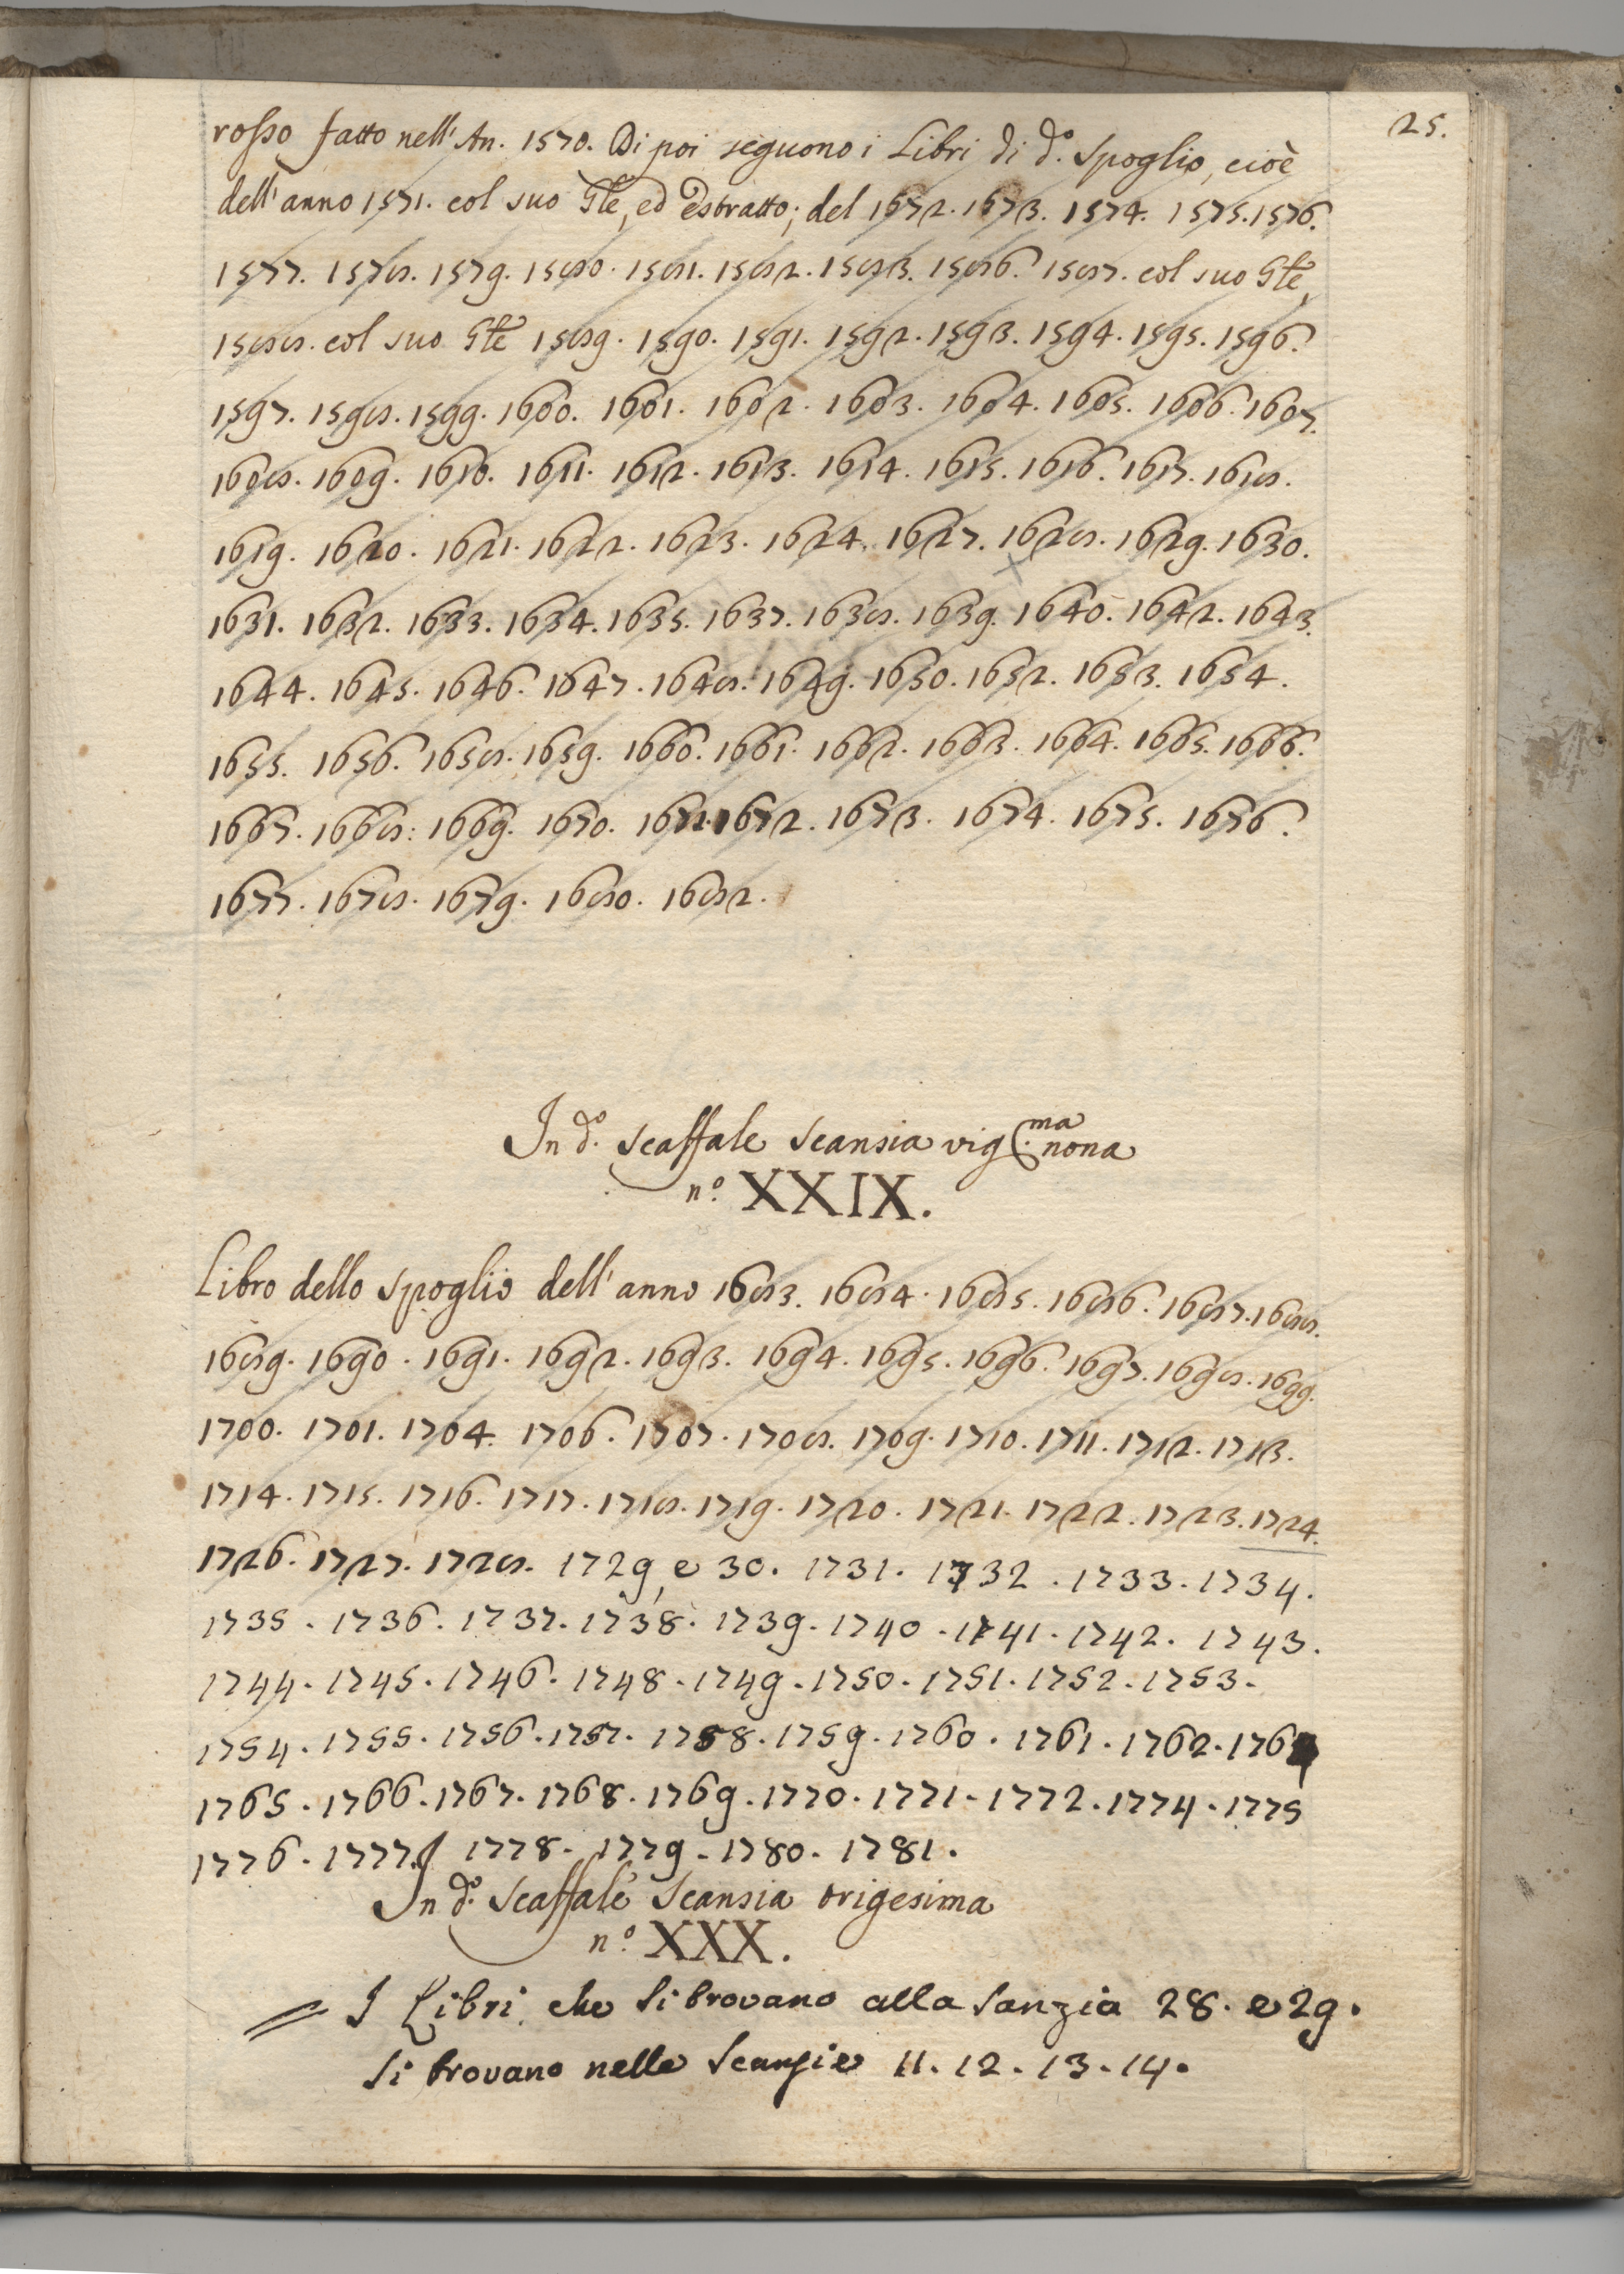 25.
rosso fatto nell' An. 1570. Di poi seguono i Libri di d.º Spoglio, cioè
dell' anno 1571. col suo Gle, ed estratto; del 1672. 1673. 1574. 1575. 1576.
1577. 1578. 1579. 1580. 1581. 1582. 1583. 1586. 1587. col suo Gle,
1588. col suo Gle 1589. 1590. 1591. 1592. 1593. 1594. 1595. 1596.
1597. 1598. 1599. 1600. 1601. 1602. 1603. 1604. 1605. 1606. 1607.
1608. 1609. 1610. 1611. 1612. 1613. 1614. 1615. 1616. 1617. 1618.
1619. 1620. 1621. 1622. 1623. 1624. 1627. 1628. 1629. 1630.
1631. 1632. 1633. 1634. 1635. 1637. 1638. 1639. 1640. 1642. 1643.
1644. 1645. 1646. 1647. 1648. 1649. 1650. 1652. 1653. 1654.
1655. 1656. 1658. 1659. 1660. 1661. 1662. 1663. 1664. 1665. 1666.
1667. 1668: 1669. 1670. 1671. 1672. 1673. 1674. 1675. 1676.
1677. 1678. 1679. 1680. 1682.
In d.º Scaffale Scansia vig.ma nona
n.º XXIX.
Libro dello Spoglio dell' anno 1683. 1684. 1685. 1686. 1687. 1688.
1689. 1690. 1691. 1692. 1693. 1694. 1695. 1696. 1697. 1698. 1699.
1700. 1701. 1704. 1706. 1707. 1708. 1709. 1710. 1711. 1712. 1713.
1714. 1715. 1716. 1717. 1718. 1719. 1720. 1721. 1722. 1723. 1724.
1726. 1727. 1728. 1729, e 30. 1731. 1732. 1733. 1734.
1735. 1736. 1737. 1738. 1739. 1740. 1741. 1742. 1743.
1744. 1745. 1746. 1748. 1749. 1750. 1751. 1752. 1753.
1754. 1755. 1756. 1757. 1758. 1759. 1760. 1761. 1762.
1765. 1766. 1767. 1768. 1769. 1770. 1771. 1772. 1774. 1775
1776. 1777. 1778. 1779. 1780. 1781.
In d.º Scaffale Scansia trigesima
n.º XXX.
= I Libri che si trovano alla Sanzia 28. e 29.
si trovano nelle Scansie 11. 12. 13. 14.